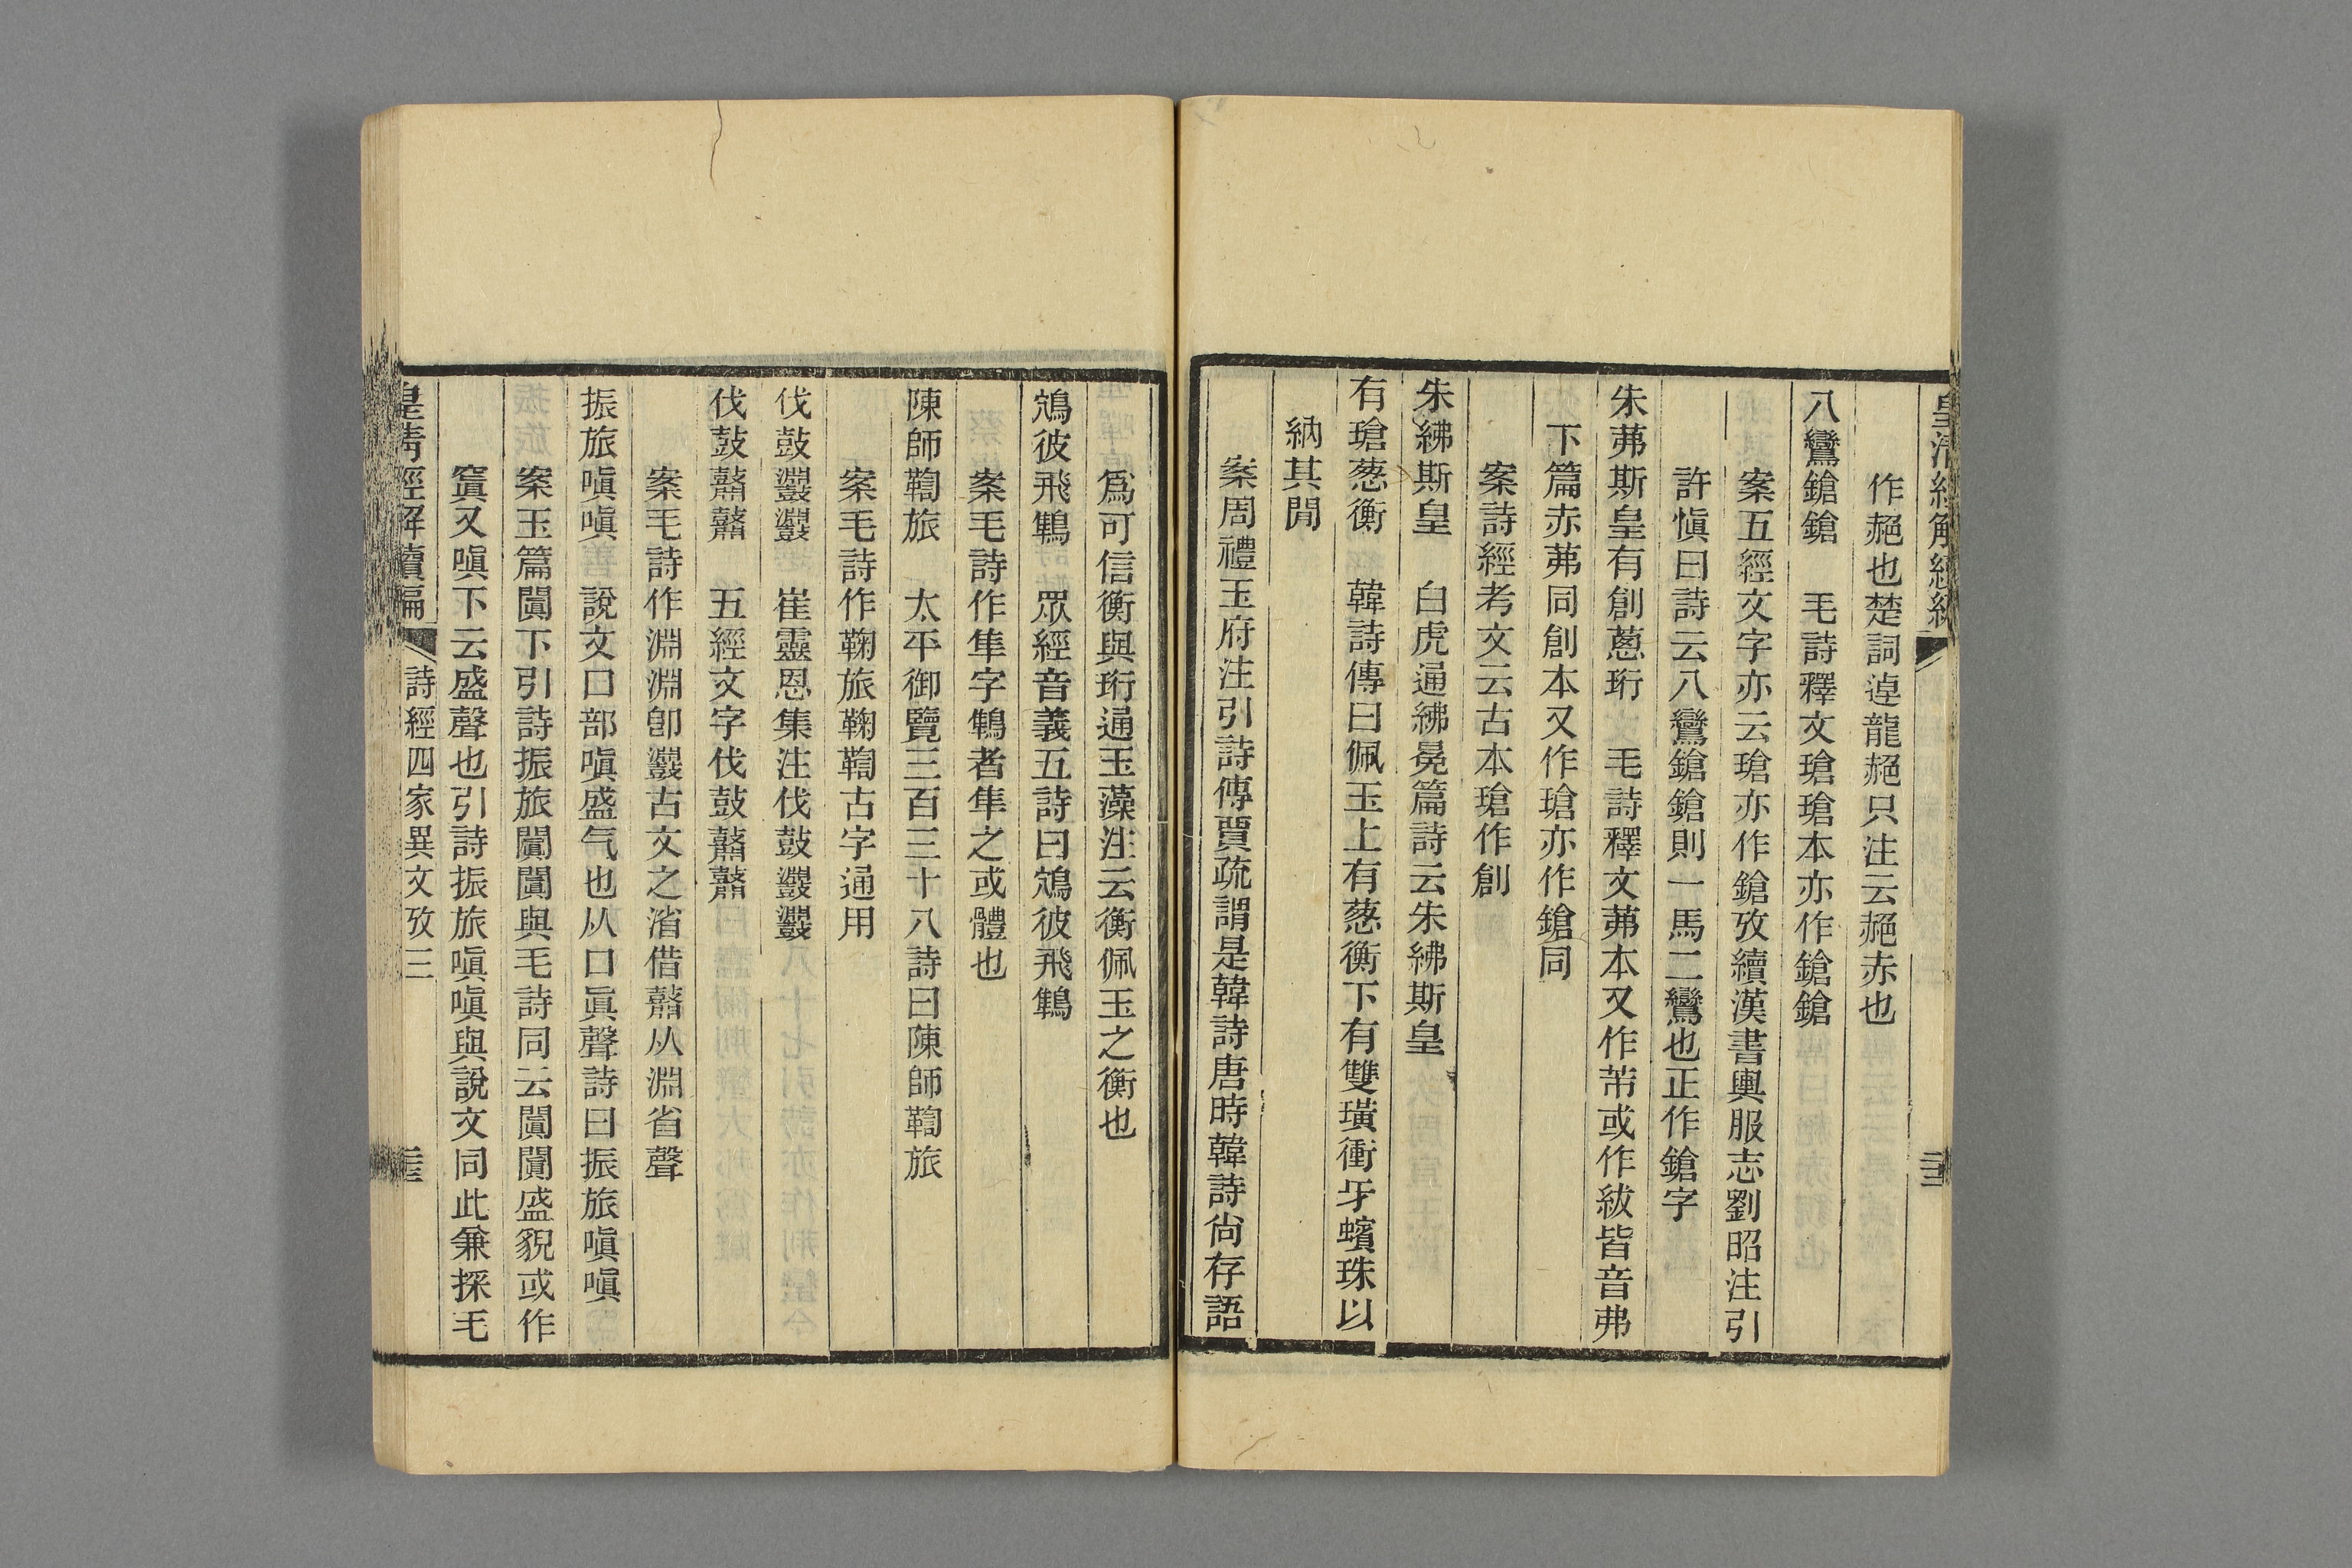 作赩也楚詞逴龍赩只注云赩赤也
八鸞鎗鎗　毛詩釋文瑲瑲本亦作鎗鎗
案五經文字亦云瑲亦作鎗攷續漢書輿服志劉昭注引
許愼曰詩云八鸞鎗鎗則一馬二鸞也正作鎗字
朱茀斯皇有創蔥珩　毛詩釋文茀本又作芾或作紱皆音弗
下篇赤茀同創本又作瑲亦作鎗同
案詩經考文云古本瑲作創
朱紼斯皇　白虎通紼冕篇詩云朱紼斯皇
有瑲葱衡　韓詩傳曰佩玉上有葱衡下有雙璜衝牙蠙珠以
納其閒
案周禮玉府注引詩傳賈疏謂是韓詩唐時韓詩尙存語
爲可信衡與珩通玉藻注云衡佩玉之衡也
鴆彼飛鶽　眾經音義五詩曰鴆彼飛鶽
案毛詩作隼字鶽者隼之或體也
陳師鞫旅　太平御覽三百三十八詩曰陳師鞫旅
案毛詩作鞠旅鞠鞫古字通用
伐鼓鼝鼝　崔靈恩集注伐鼓鼝鼝
伐鼓鼘鼘　五經文字伐鼓鼘鼘
案毛詩作淵淵卽鼝古文之渻借鼘从淵省聲
振旅嗔嗔　說文口部嗔盛气也从口眞聲詩曰振旅嗔嗔
案玉篇闐下引詩振旅闐闐與毛詩同云闐闐盛貌或作
窴又嗔下云盛聲也引詩振旅嗔嗔與說文同此兼探毛
皇淸經解續編　詩經四家異文攷三